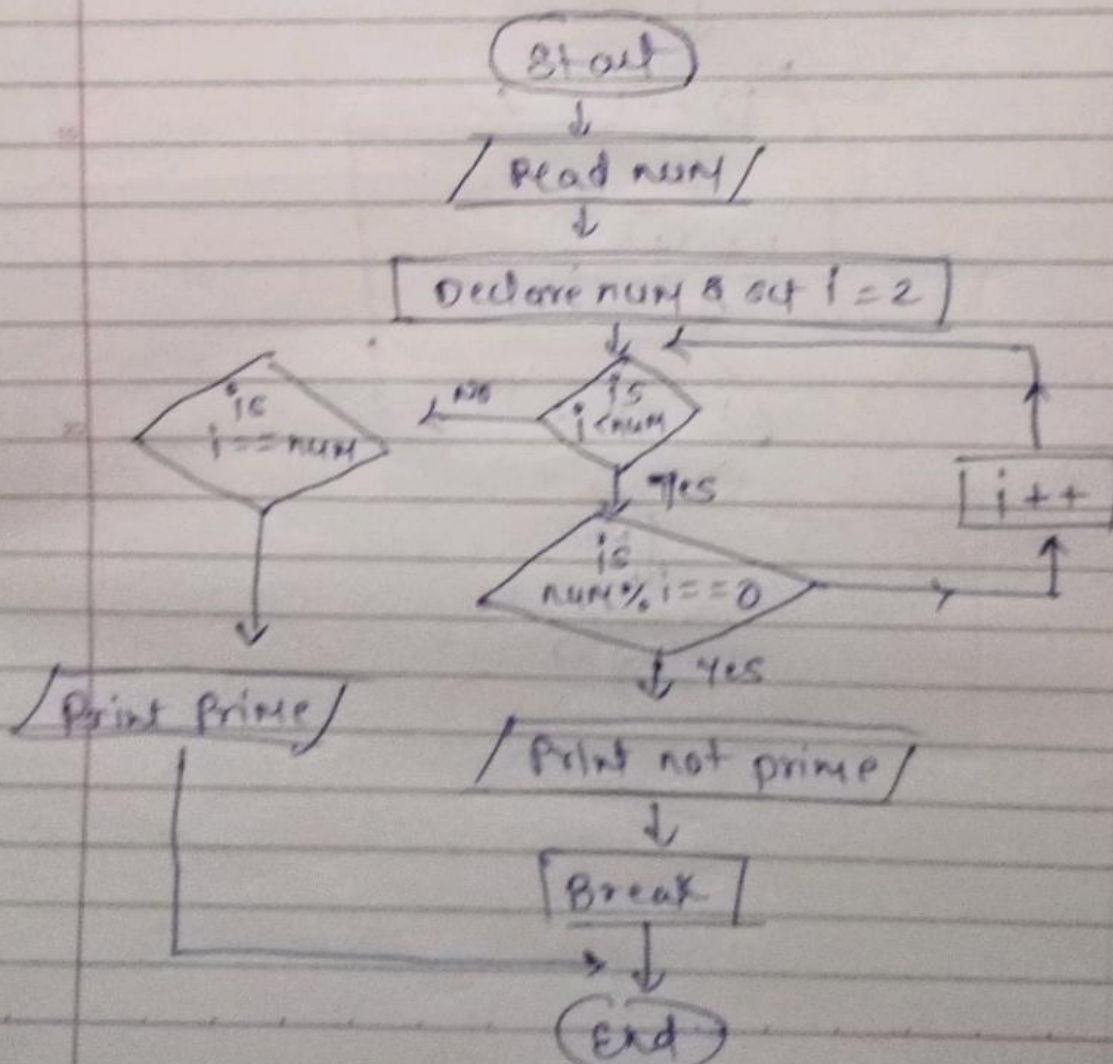 Start
Read num
Declare num & set i = 2
is
i < num
No
is
i == num
Yes
i ++
is
num % i == 0
Yes
Print Prime
Print not prime
Break
End